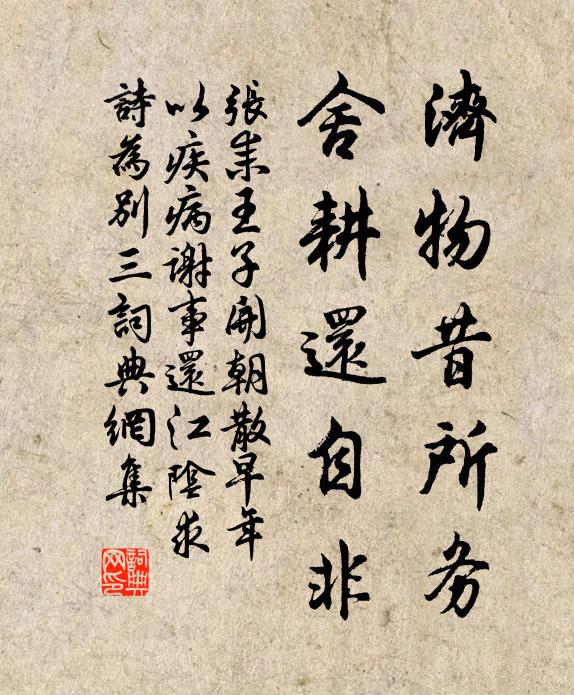 濟物昔所务
舍耕還自非
張耒王子開朝散早年
以疾病謝事還江陰求
詩為別三詞典網集
詞典网印